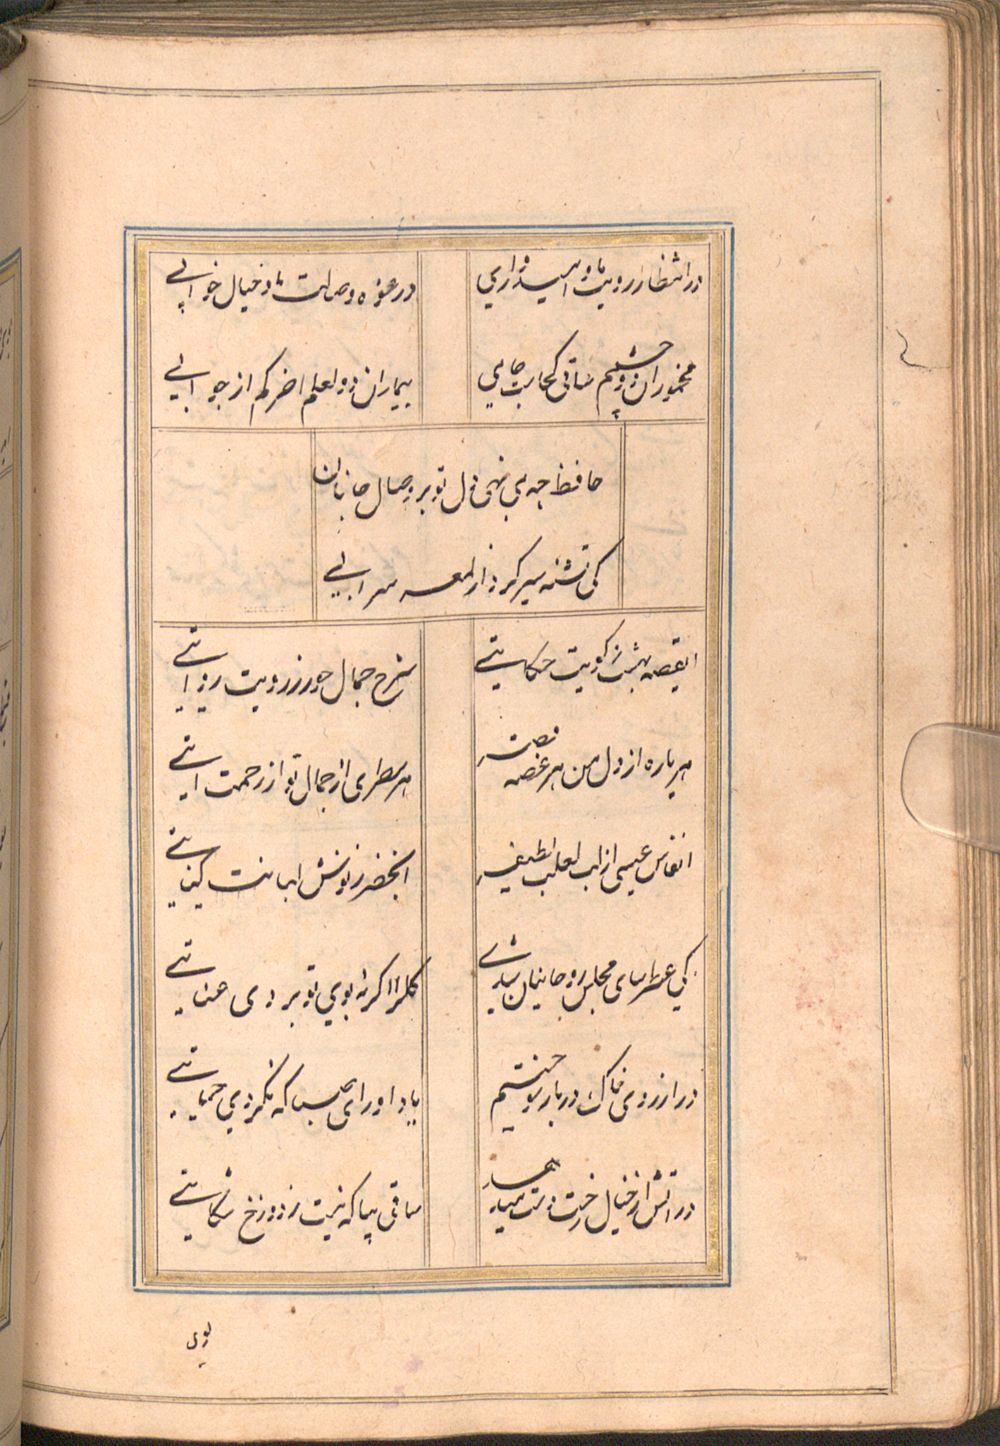 در انتظار رویت ما و امیدواری
در عشوه وصالت ما و خیال خوابی
مخموران دو چشمم ساقی کجاست جامی
بیمار ان دو لعلم اخر کم از جوابی
حافظ چه می نهی دل تو بر وصال جانان
کی تشنه سیر گردد از لمعه سرابی
ای قصه بهشت ز کویت حکایتی
شرح جمال حور ز رویت روایتی
هر پاره از دل من هر غصه قصه
هر سطری از جمال تو از رحمت ایتی
انفاس عیسی از لب لعلت لطیفه
اب خضر ز نوش لبانت کنایتی
کی عطر سای مجلس روحانیان شدی
گل را اگر نه بوی تو بردی عنایتی
در ارزوی خاک در یار سوختیم
یاد اور ای صبا که نکردی حمایتی
در اتش ار خیال رخت دست میدهد
ساقی بیا که نیست ز دوزخ شکایتی
بوی